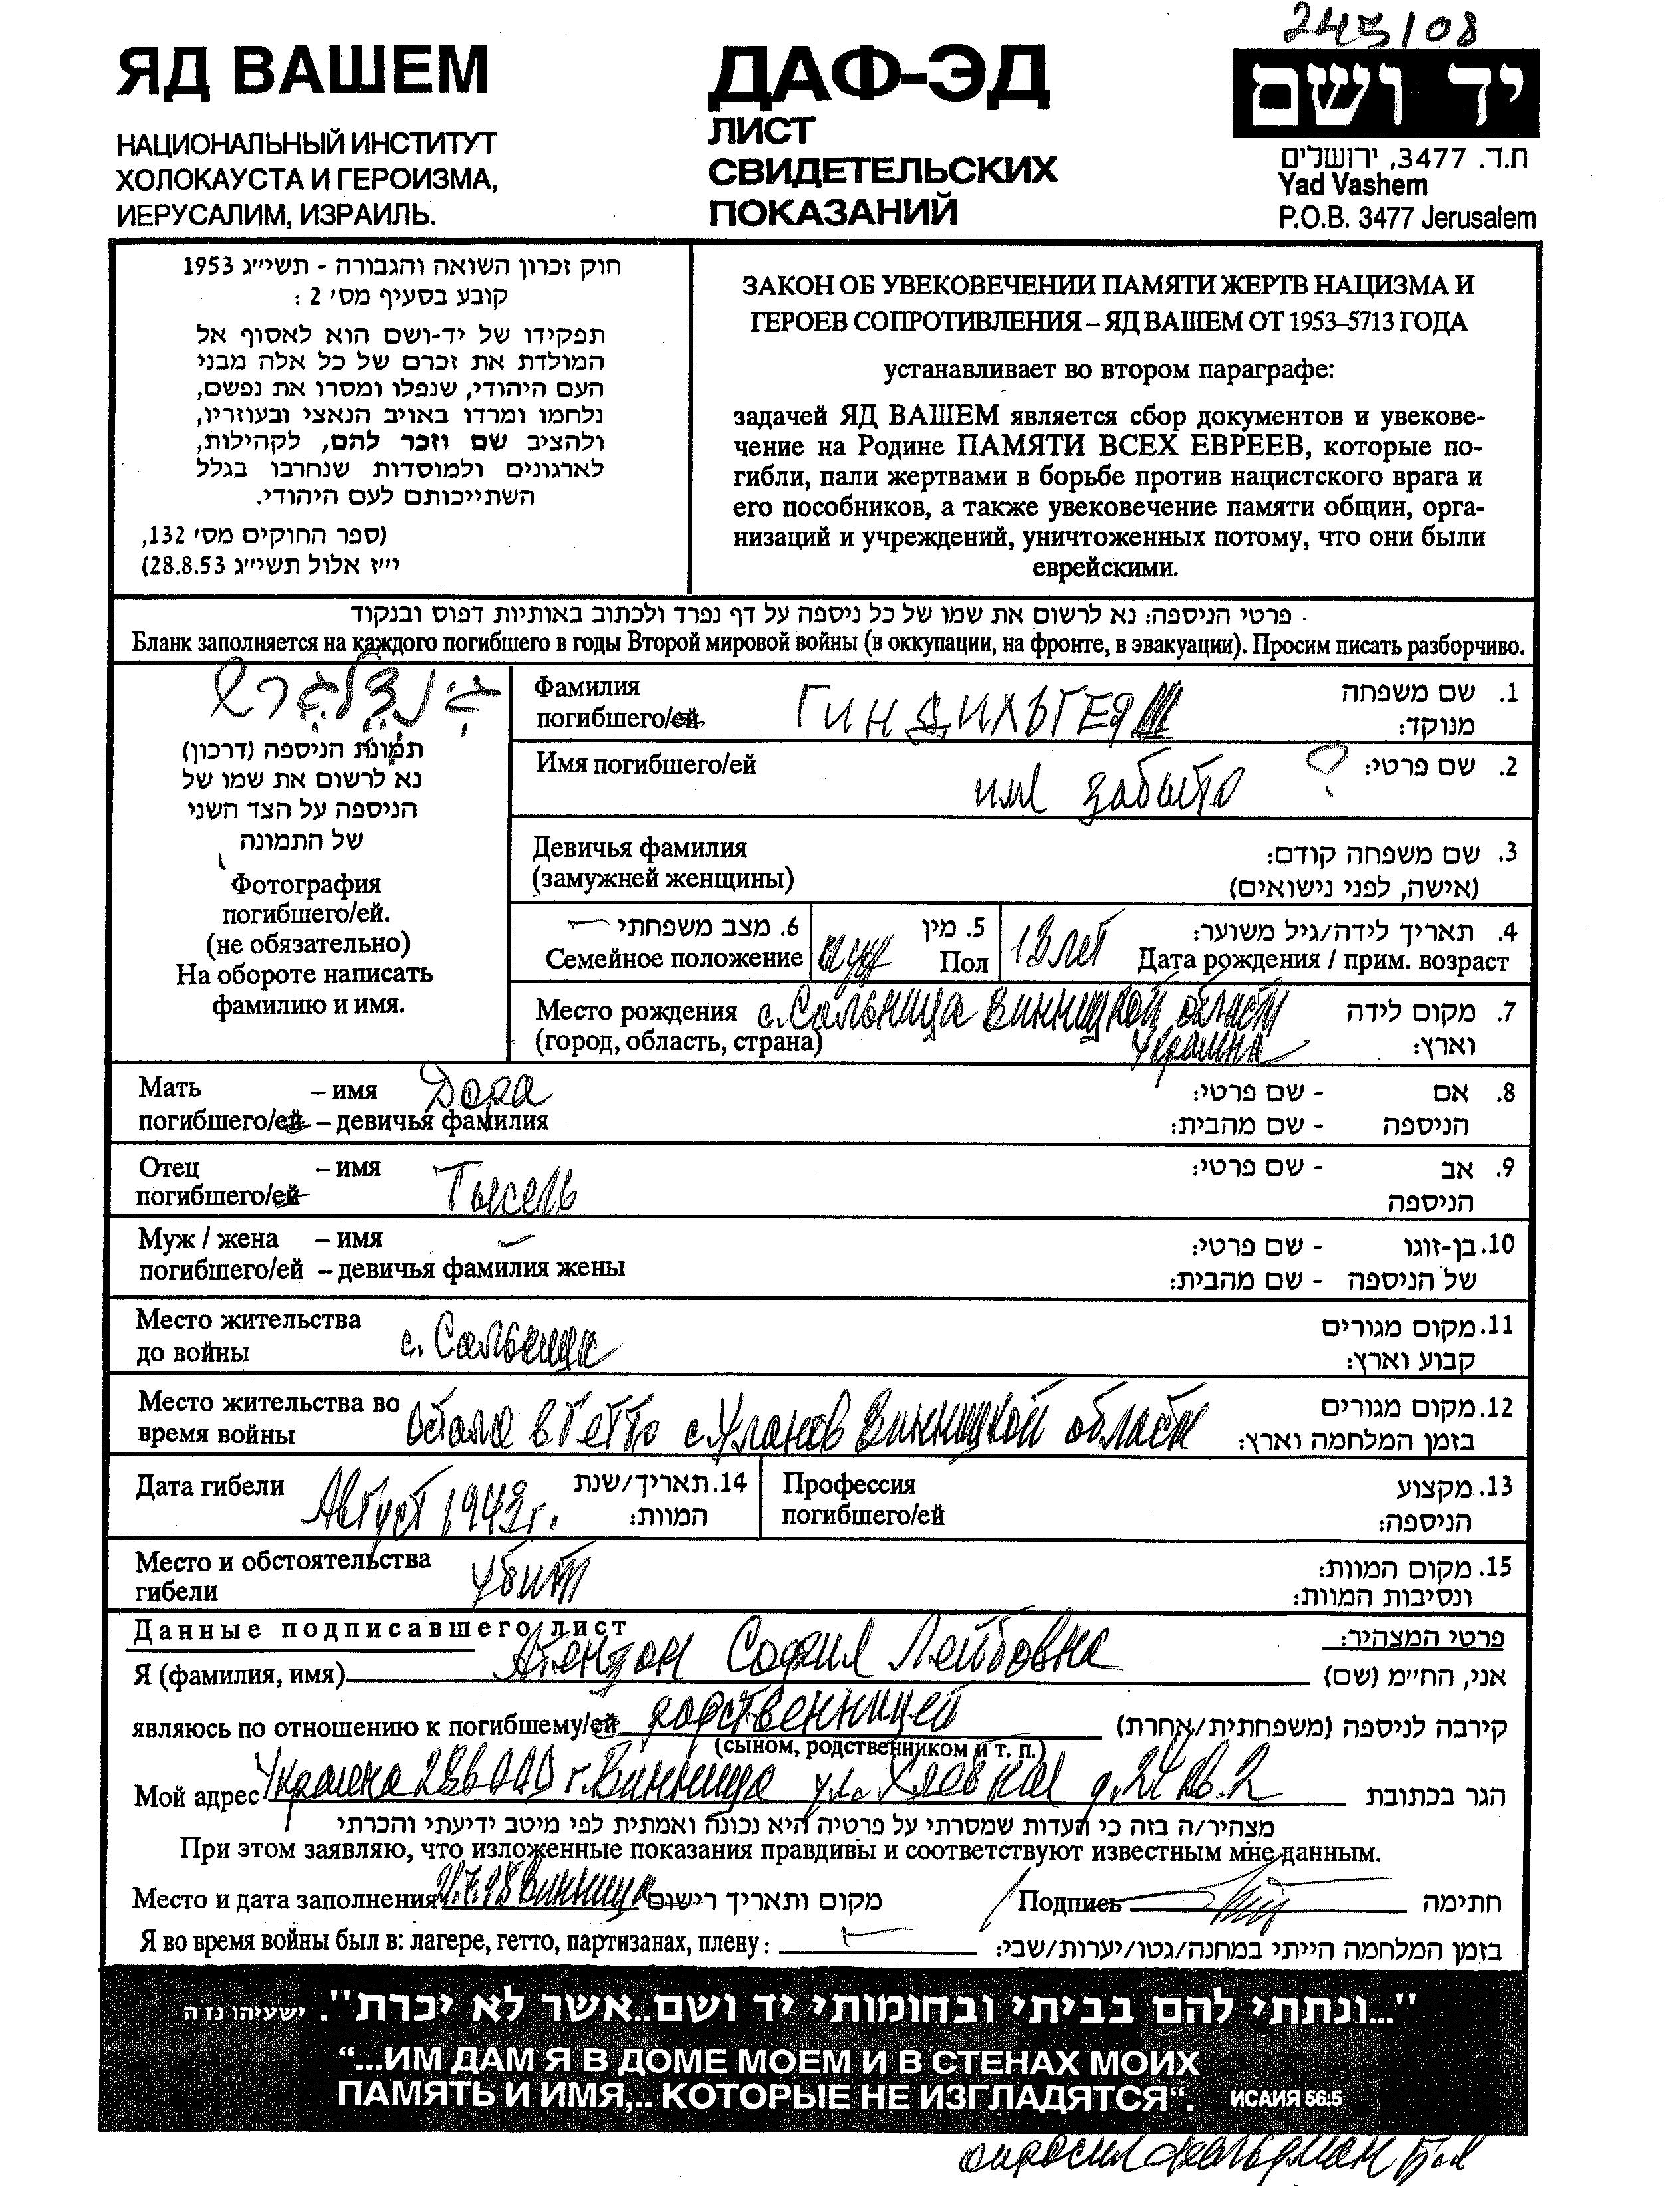 245/08
ЯД ВАШЕМ
НАЦИОНАЛЬНЫЙ ИНСТИТУТ
ХОЛОКАУСТА И ГЕРОИЗМА,
ИЕРУСАЛИМ, ИЗРАИЛЬ.
ДАФ-ЭД
ЛИСТ
СВИДЕТЕЛЬСКИХ
ПОКАЗАНИЙ
יד ושם
ת.ד. 3477, ירושלים
Yad Vashem
P.O.B. 3477 Jerusalem
חוק זכרון השואה והגבורה - תשי״ג 1953
קובע בסעיף מס׳ 2 :
תפקידו של יד-ושם הוא לאסוף אל
המולדת את זכרם של כל אלה מבני
העם היהודי, שנפלו ומסרו את נפשם,
נלחמו ומרדו באויב הנאצי ובעוזריו,
ולהציב שם וזכר להם, לקהילות,
לארגונים ולמוסדות שנחרבו בגלל
השתייכותם לעם היהודי.
(ספר החוקים מס׳ 132,
י״ז אלול תשי״ג 28.8.53)
ЗАКОН ОБ УВЕКОВЕЧЕНИИ ПАМЯТИ ЖЕРТВ НАЦИЗМА И
ГЕРОЕВ СОПРОТИВЛЕНИЯ – ЯД ВАШЕМ ОТ 1953–5713 ГОДА
устанавливает во втором параграфе:
задачей ЯД ВАШЕМ является сбор документов и увекове-
чение на Родине ПАМЯТИ ВСЕХ ЕВРЕЕВ, которые по-
гибли, пали жертвами в борьбе против нацистского врага и
его пособников, а также увековечение памяти общин, орга-
низаций и учреждений, уничтоженных потому, что они были
еврейскими.
פרטי הניספה: נא לרשום את שמו של כל ניספה על דף נפרד ולכתוב באותיות דפוס ובנקוד
Бланк заполняется на каждого погибшего в годы Второй мировой войны (в оккупации, на фронте, в эвакуации). Просим писать разборчиво.
תמונת הניספה (דרכון)
נא לרשום את שמו של
הניספה על הצד השני
של התמונה
Фотография
погибшего/ей.
(не обязательно)
На обороте написать
фамилию и имя.
Фамилия שם משפחה .1
погибшего/ей ГИНДИЛЬГЕЯ מנוקד:
Имя погибшего/ей имя забыто ? שם פרטי: .2
Девичья фамилия שם משפחה קודם: .3
(замужней женщины) (אישה, לפני נישואים)
6. מצב משפחתי — 5. מין 4. תאריך לידה/גיל משוער:
Семейное положение муж Пол 13 лет Дата рождения / прим. возраст
Место рождения с. Сальница Винницкой области מקום לידה .7
(город, область, страна) Украина וארץ:
Мать – имя Дора 8. אם - שם פרטי:
погибшего/ей – девичья фамилия הניספה - שם מהבית:
Отец – имя 9. אב - שם פרטי:
погибшего/ей Тысель הניספה
Муж / жена – имя — 10. בן-זוגו - שם פרטי:
погибшего/ей – девичья фамилия жены של הניספה - שם מהבית:
Место жительства 11. מקום מגורים
до войны с. Сальница קבוע וארץ:
Место жительства во 12. מקום מגורים
время войны в гетто с. Уланов Винницкой области בזמן המלחמה וארץ:
Дата гибели Август 1942 г. 14. תאריך/שנת המוות:
Профессия 13. מקצוע
погибшего/ей הניספה:
Место и обстоятельства 15. מקום המוות:
гибели убит ונסיבות המוות:
Данные подписавшего лист פרטי המצהיר:
Я (фамилия, имя) София Лейбовна אני, החי״מ (שם)
являюсь по отношению к погибшему/ей родственницей קירבה לניספה (משפחתית/אחרת)
(сыном, родственником и т. п.)
Мой адрес Украина г. Винница ул. д. 24 кв. 2 הגר בכתובת
מצהיר/ה בזה כי העדות שמסרתי על פרטיה היא נכונה ואמתית לפי מיטב ידיעתי והכרתי
При этом заявляю, что изложенные показания правдивы и соответствуют известным мне данным.
Место и дата заполнения Винница מקום ותאריך רישום Подпись חתימה
Я во время войны был в: лагере, гетто, партизанах, плену : — בזמן המלחמה הייתי במחנה/גטו/יערות/שבי:
"...ונתתי להם בביתי ובחומותי יד ושם..אשר לא יכרת". ישעיהו נז ה
“...ИМ ДАМ Я В ДОМЕ МОЕМ И В СТЕНАХ МОИХ
ПАМЯТЬ И ИМЯ,.. КОТОРЫЕ НЕ ИЗГЛАДЯТСЯ“. ИСАИЯ 56:5
опросил Фельдман